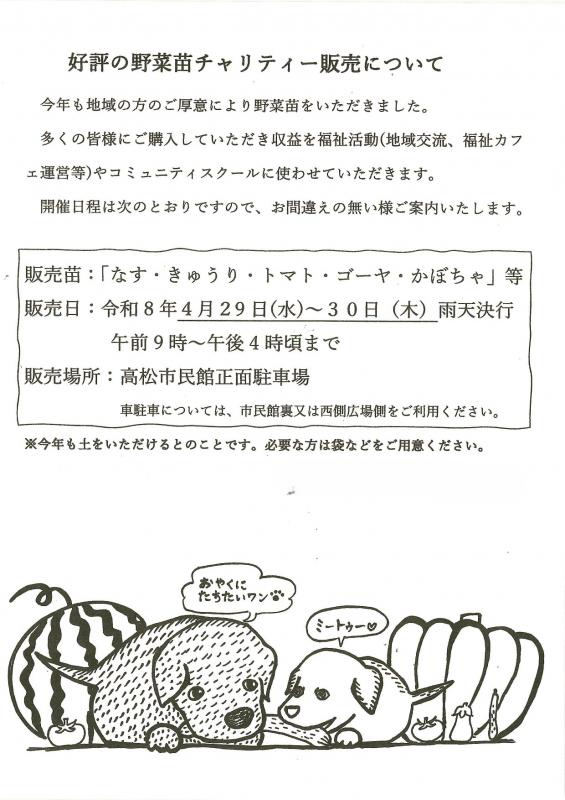 好評の野菜苗チャリティー販売について
今年も地域の方のご厚意により野菜苗をいただきました。
多くの皆様にご購入していただき収益を福祉活動(地域交流、福祉カフ
ェ運営等)やコミュニティスクールに使わせていただきます。
開催日程は次のとおりですので、お間違えの無い様ご案内いたします。
販売苗：「なす・きゅうり・トマト・ゴーヤ・かぼちゃ」等
販売日：令和８年４月２９日(水)～３０日（木）雨天決行
午前９時～午後４時頃まで
販売場所：高松市民館正面駐車場
車駐車については、市民館裏又は西側広場側をご利用ください。
※今年も土をいただけるとのことです。必要な方は袋などをご用意ください。
おやくに
たちたいワン
ミートゥー♡